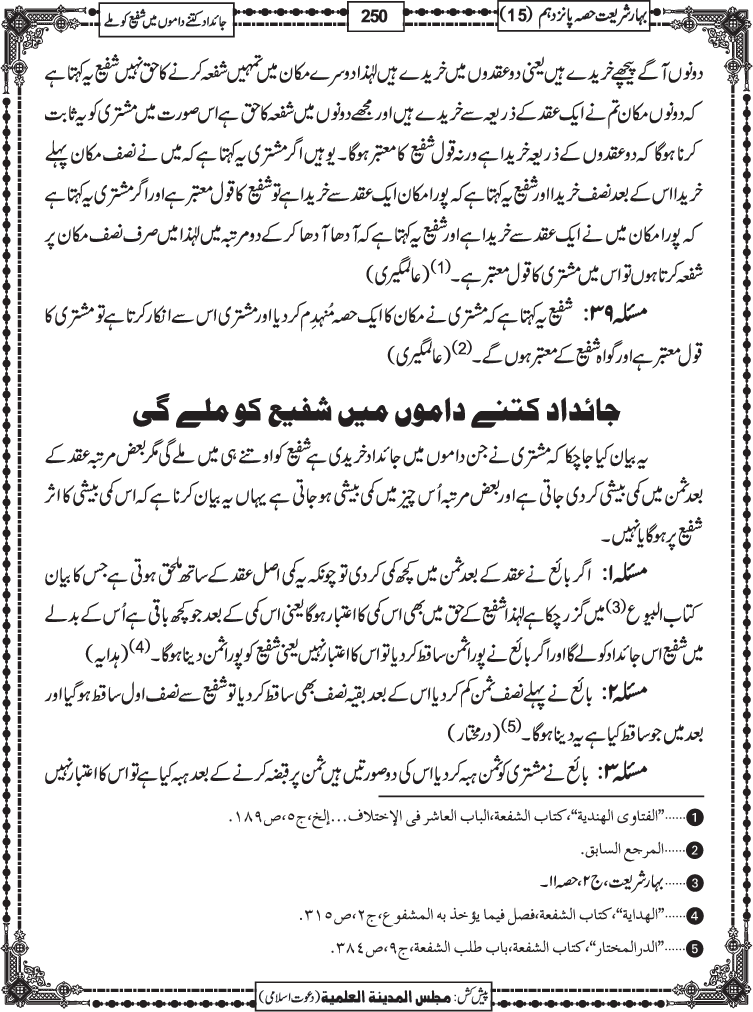 بہارِ شریعت حصہ پانزدہم (15)
250
جائداد کتنے داموں میں شفیع کو ملے
دونوں آگے پیچھے خریدے ہیں یعنی دو عقدوں میں خریدے ہیں لہٰذا دوسرے مکان میں تمہیں شفعہ کرنے کا حق نہیں شفیع یہ کہتا ہے
کہ دونوں مکان تم نے ایک عقد کے ذریعہ سے خریدے ہیں اور مجھے دونوں میں شفعہ کا حق ہے اس صورت میں مشتری کو یہ ثابت
کرنا ہوگا کہ دو عقدوں کے ذریعہ خریدا ہے ورنہ قول شفیع کا معتبر ہوگا۔ یوہیں اگر مشتری یہ کہتا ہے کہ میں نے نصف مکان پہلے
خریدا اس کے بعد نصف خریدا اور شفیع یہ کہتا ہے کہ پورا مکان ایک عقد سے خریدا ہے تو شفیع کا قول معتبر ہے اور اگر مشتری یہ کہتا ہے
کہ پورا مکان میں نے ایک عقد سے خریدا ہے اور شفیع یہ کہتا ہے کہ آدھا آدھا کرکے دو مرتبہ میں لہٰذا میں صرف نصف مکان پر
شفعہ کرتا ہوں تو اس میں مشتری کا قول معتبر ہے۔(1) (عالمگیری)
مسئلہ ۳۹: شفیع یہ کہتا ہے کہ مشتری نے مکان کا ایک حصہ مُنہدِم کردیا اور مشتری اس سے انکار کرتا ہے تو مشتری کا
قول معتبر ہے اور گواہ شفیع کے معتبر ہوں گے۔(2) (عالمگیری)
جائداد کتنے داموں میں شفیع کو ملے گی
یہ بیان کیا جاچکا کہ مشتری نے جن داموں میں جائداد خریدی ہے شفیع کو اوتنے ہی میں ملے گی مگر بعض مرتبہ عقد کے
بعد ثمن میں کمی بیشی کردی جاتی ہے اور بعض مرتبہ اُس چیز میں کمی بیشی ہو جاتی ہے یہاں یہ بیان کرنا ہے کہ اس کمی بیشی کا اثر
شفیع پر ہوگا یا نہیں۔
مسئلہ ۱: اگر بائع نے عقد کے بعد ثمن میں کچھ کمی کردی تو چونکہ یہ کمی اصل عقد کے ساتھ ملحق ہوتی ہے جس کا بیان
کتاب البیوع (3) میں گزر چکا ہے لہٰذا شفیع کے حق میں بھی اس کمی کا اعتبار ہوگا یعنی اس کمی کے بعد جو کچھ باقی ہے اُس کے بدلے
میں شفیع اس جائداد کو لے گا اور اگر بائع نے پورا ثمن ساقط کردیا تو اس کا اعتبار نہیں یعنی شفیع کو پورا ثمن دینا ہوگا۔(4) (ہدایہ)
مسئلہ ۲: بائع نے پہلے نصف ثمن کم کردیا اس کے بعد بقیہ نصف بھی ساقط کردیا تو شفیع سے نصف اول ساقط ہوگیا اور
بعد میں جو ساقط کیا ہے یہ دینا ہوگا۔(5) (درمختار)
مسئلہ ۳: بائع نے مشتری کو ثمن ہبہ کردیا اس کی دو صورتیں ہیں ثمن پر قبضہ کرنے کے بعد ہبہ کیا ہے تو اس کا اعتبار نہیں
1 ......"الفتاوی الھندیة"، کتاب الشفعة، الباب العاشر فی الإختلاف...إلخ، ج٥، ص١٨٩.
2 ......المرجع السابق.
3 ......بہارِ شریعت، ج۲، حصہ۱۱۔
4 ......"الھدایة"، کتاب الشفعة، فصل فیما یؤخذ به المشفوع، ج٢، ص٣١٥.
5 ......"الدرالمختار"، کتاب الشفعة، باب طلب الشفعة، ج٩، ص٣٨٤.
پیش کش: مجلس المدینة العلمیة (دعوتِ اسلامی)